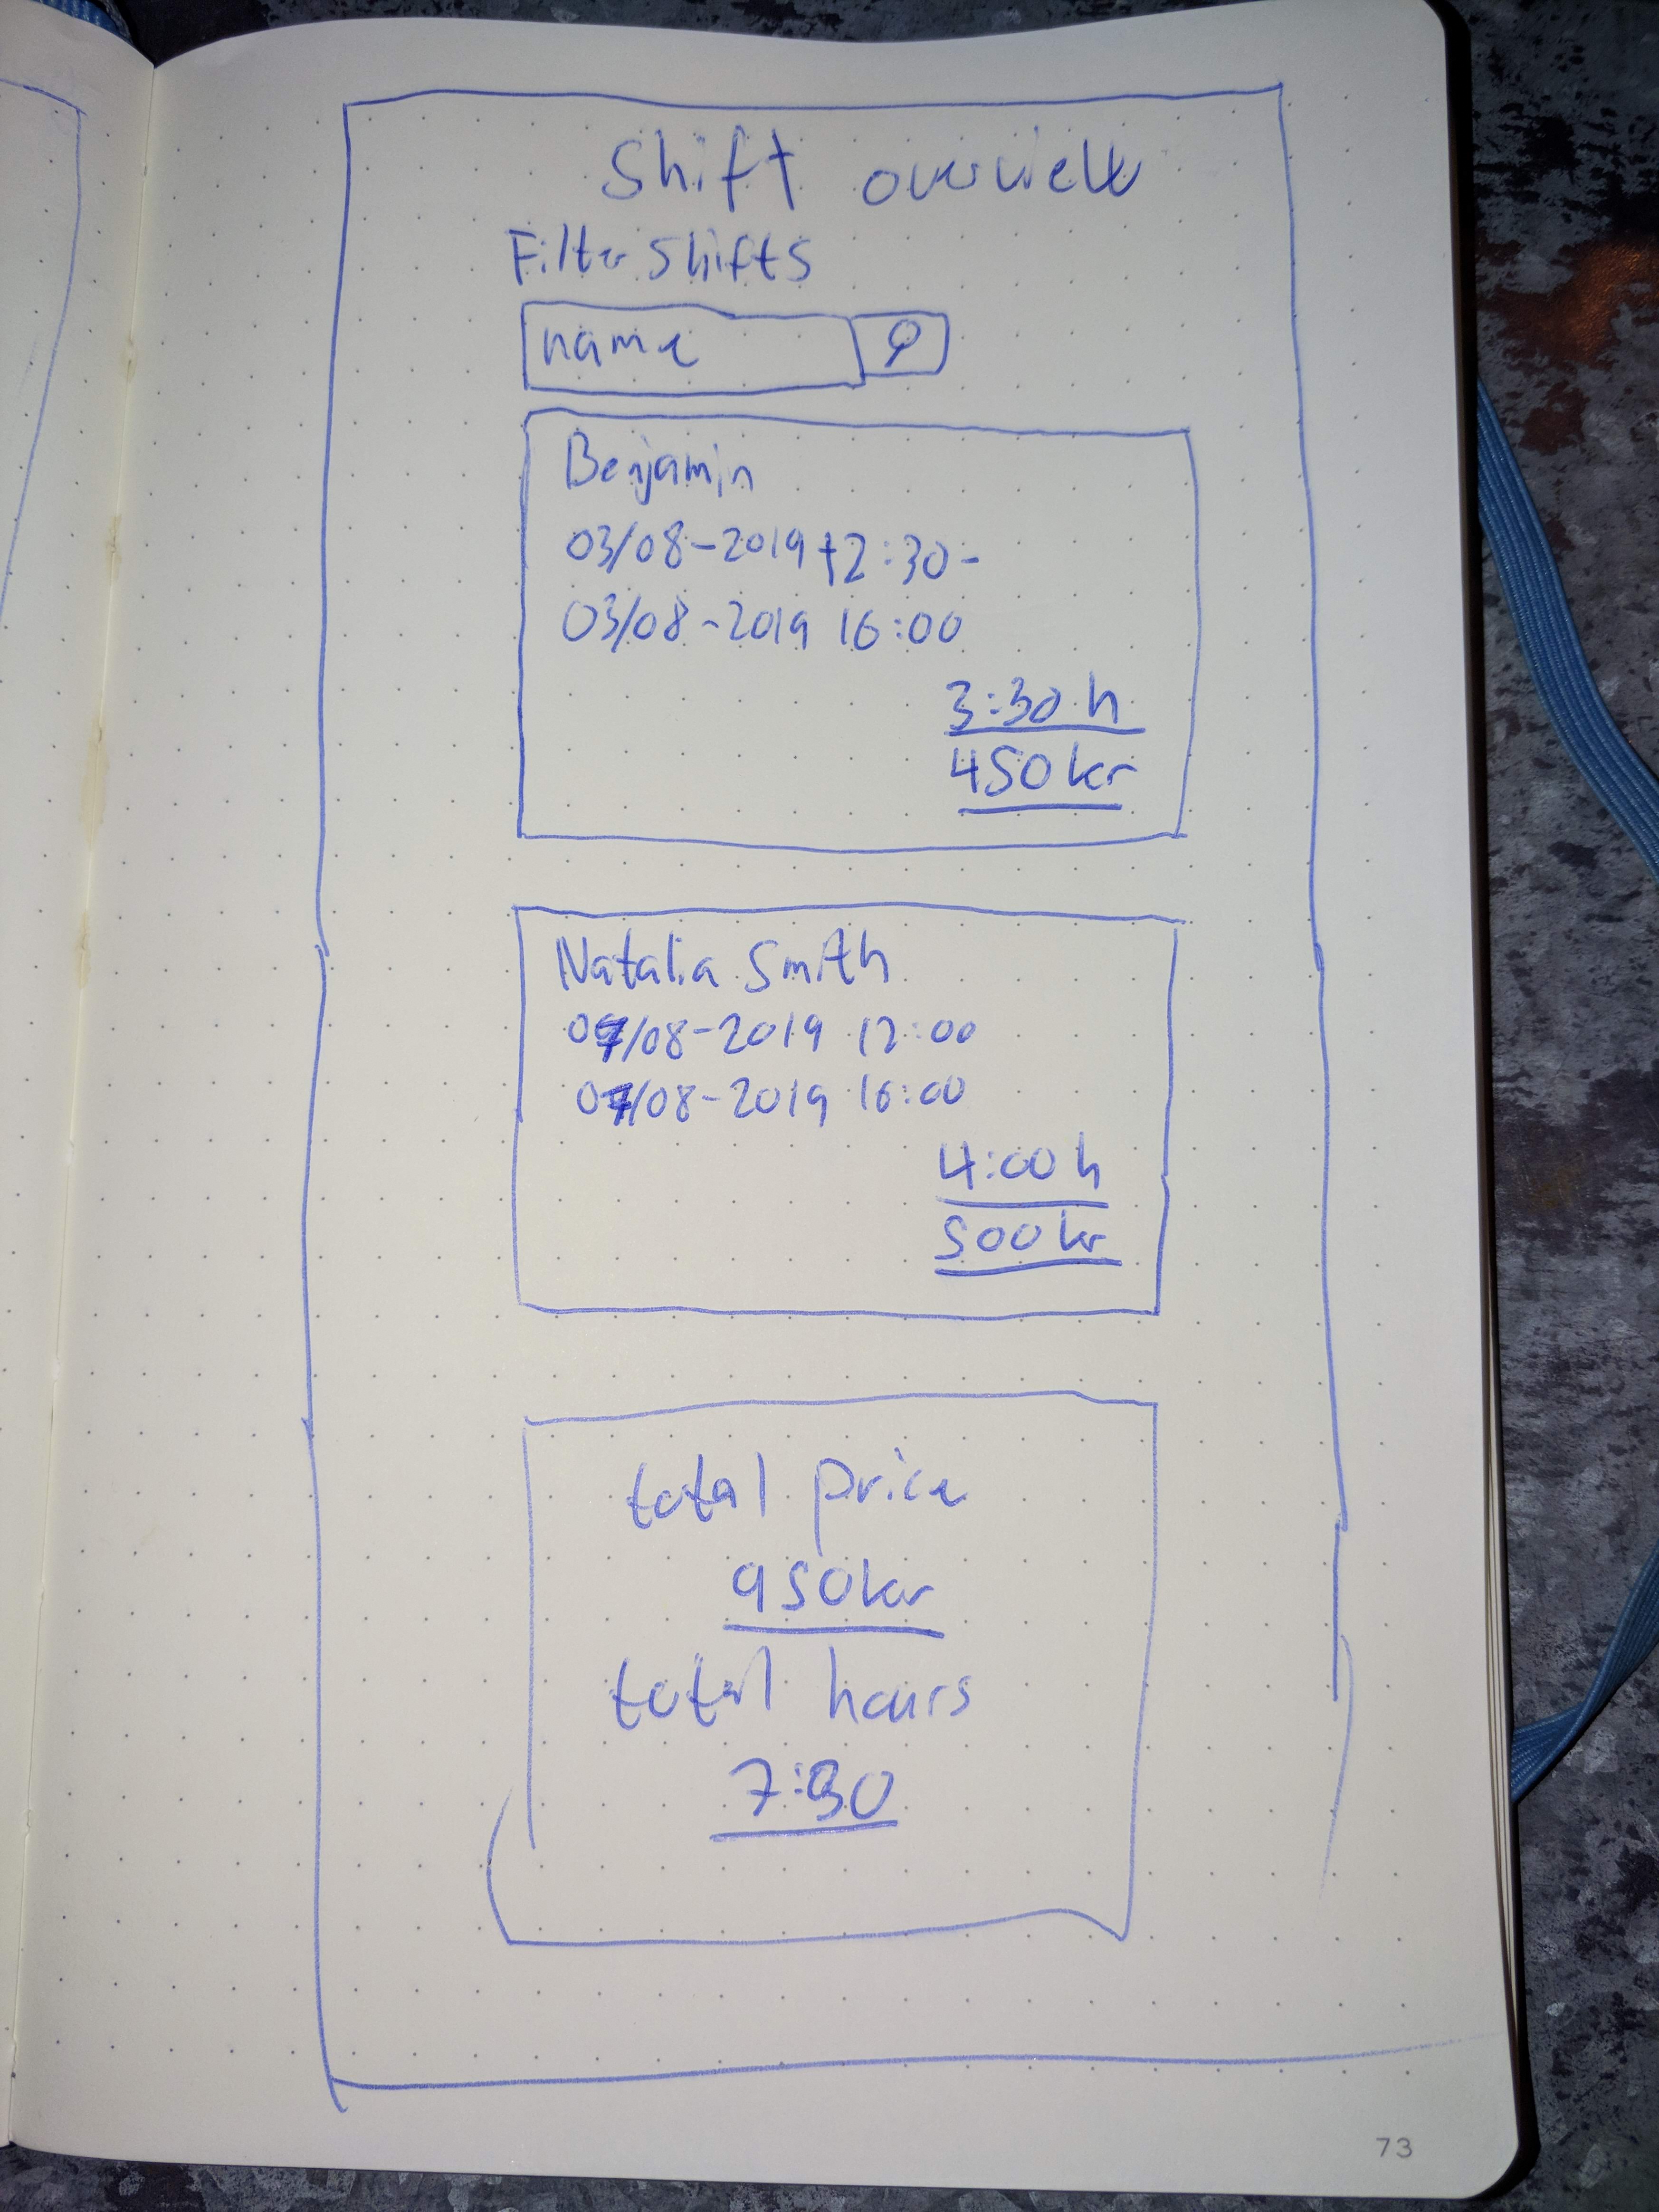 Shift overview
Filter shifts
name
Benjamin
03/08-2019 12:30-
03/08-2019 16:00
3:30 h
450kr
Natalia Smith
07/08-2019 12:00
07/08-2019 16:00
4:00 h
500 kr
total price
950kr
total hours
7:30
73